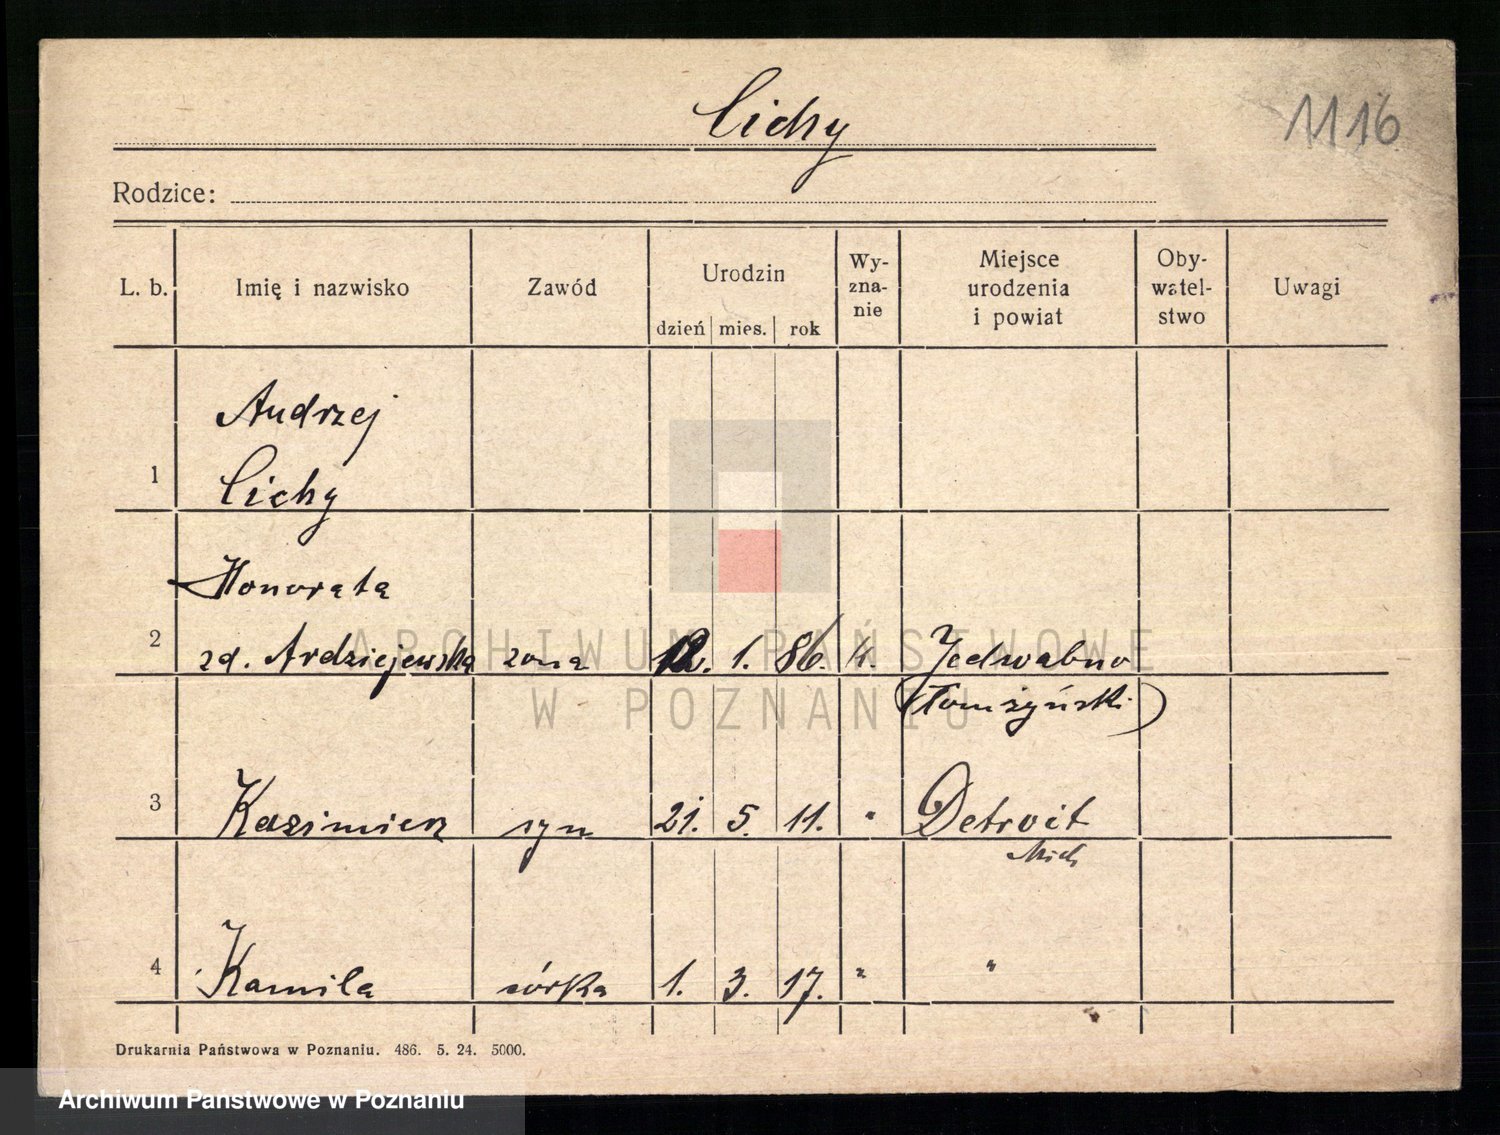 Cichy
1116
Rodzice:
L. b. Imię i nazwisko Zawód Urodzin dzień mies. rok Wy-zna-nie Miejsce urodzenia i powiat Oby-watel-stwo Uwagi
Andrzej
1 Cichy
Honorata
2 zd. Ardziejewska żona 12. 1. 86. k. Jedwabno
(Łomżyński)
3 Kazimierz syn 21. 5. 11. " Detroit
Mich
4 Kamila córka 1. 3. 17. " "
Drukarnia Państwowa w Poznaniu. 486. 5. 24. 5000.
ARCHIWUM PAŃSTWOWE
W POZNANIU
Archiwum Państwowe w Poznaniu